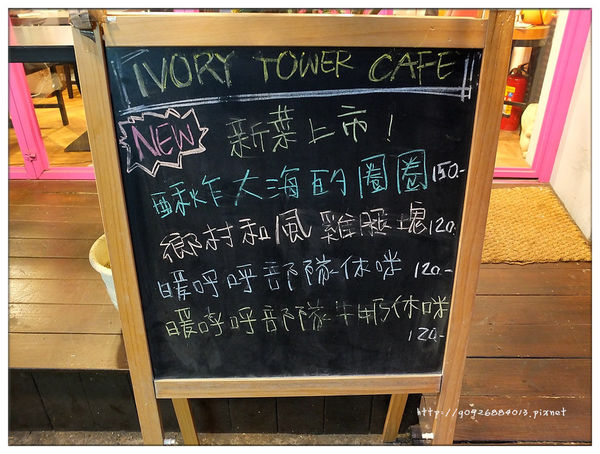 IVORY TOWER CAFE
NEW 新菜上市!
酥炸大海的圈圈150.-
鄉村和風雞腿塊120.-
暖呼呼部隊休咪 120.-
暖呼呼部隊牛奶休咪
120.-
http://go926884013.pixnet